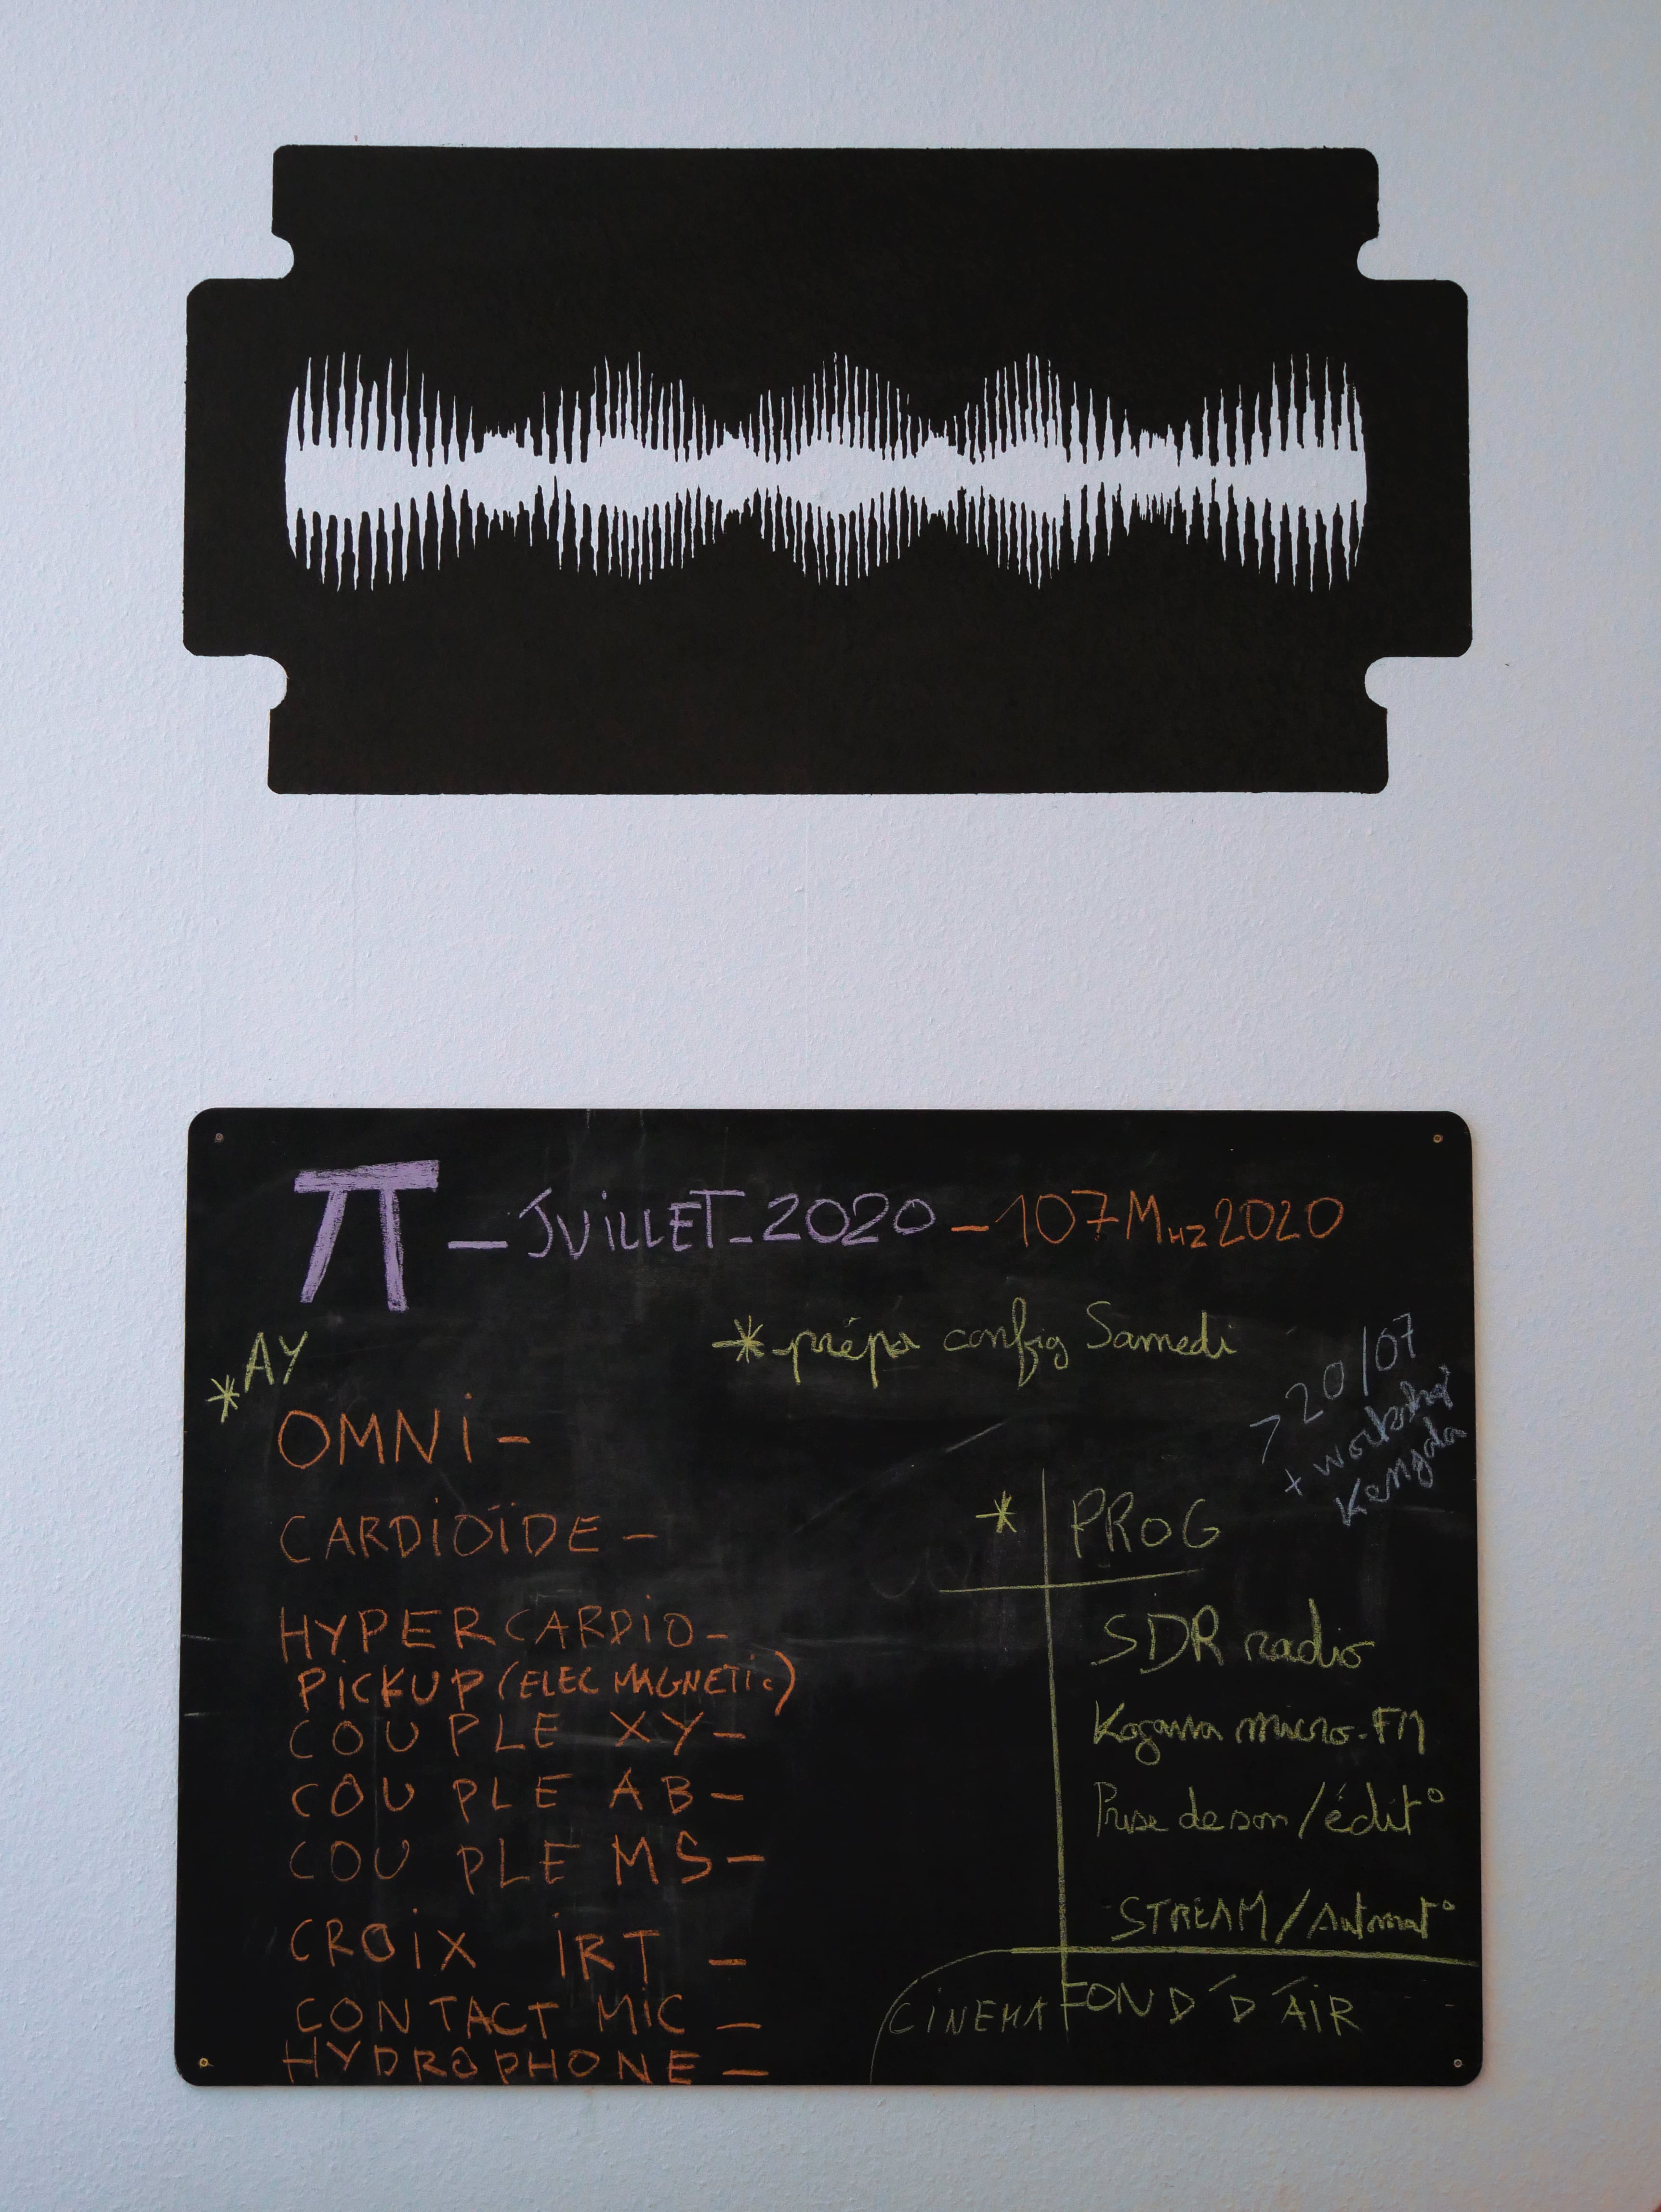 π - JUiLLET - 2020 - 107 MHz 2020
* prépa config Samedi
* AY
> 20/07
+ workshop
OMNi -
CARDiOïDE -
HYPERCARDiO -
PiCKUP (ELEC MAGNETiC)
COUPLE XY -
COUPLE AB -
COUPLE MS -
CROiX iRT -
CONTACT MiC -
HYDROPHONE -
* PROG
SDR radio
Kogawa micro-FM
Prise de son / édit°
STREAM / Automat°
CiNEMA FOND D'AiR